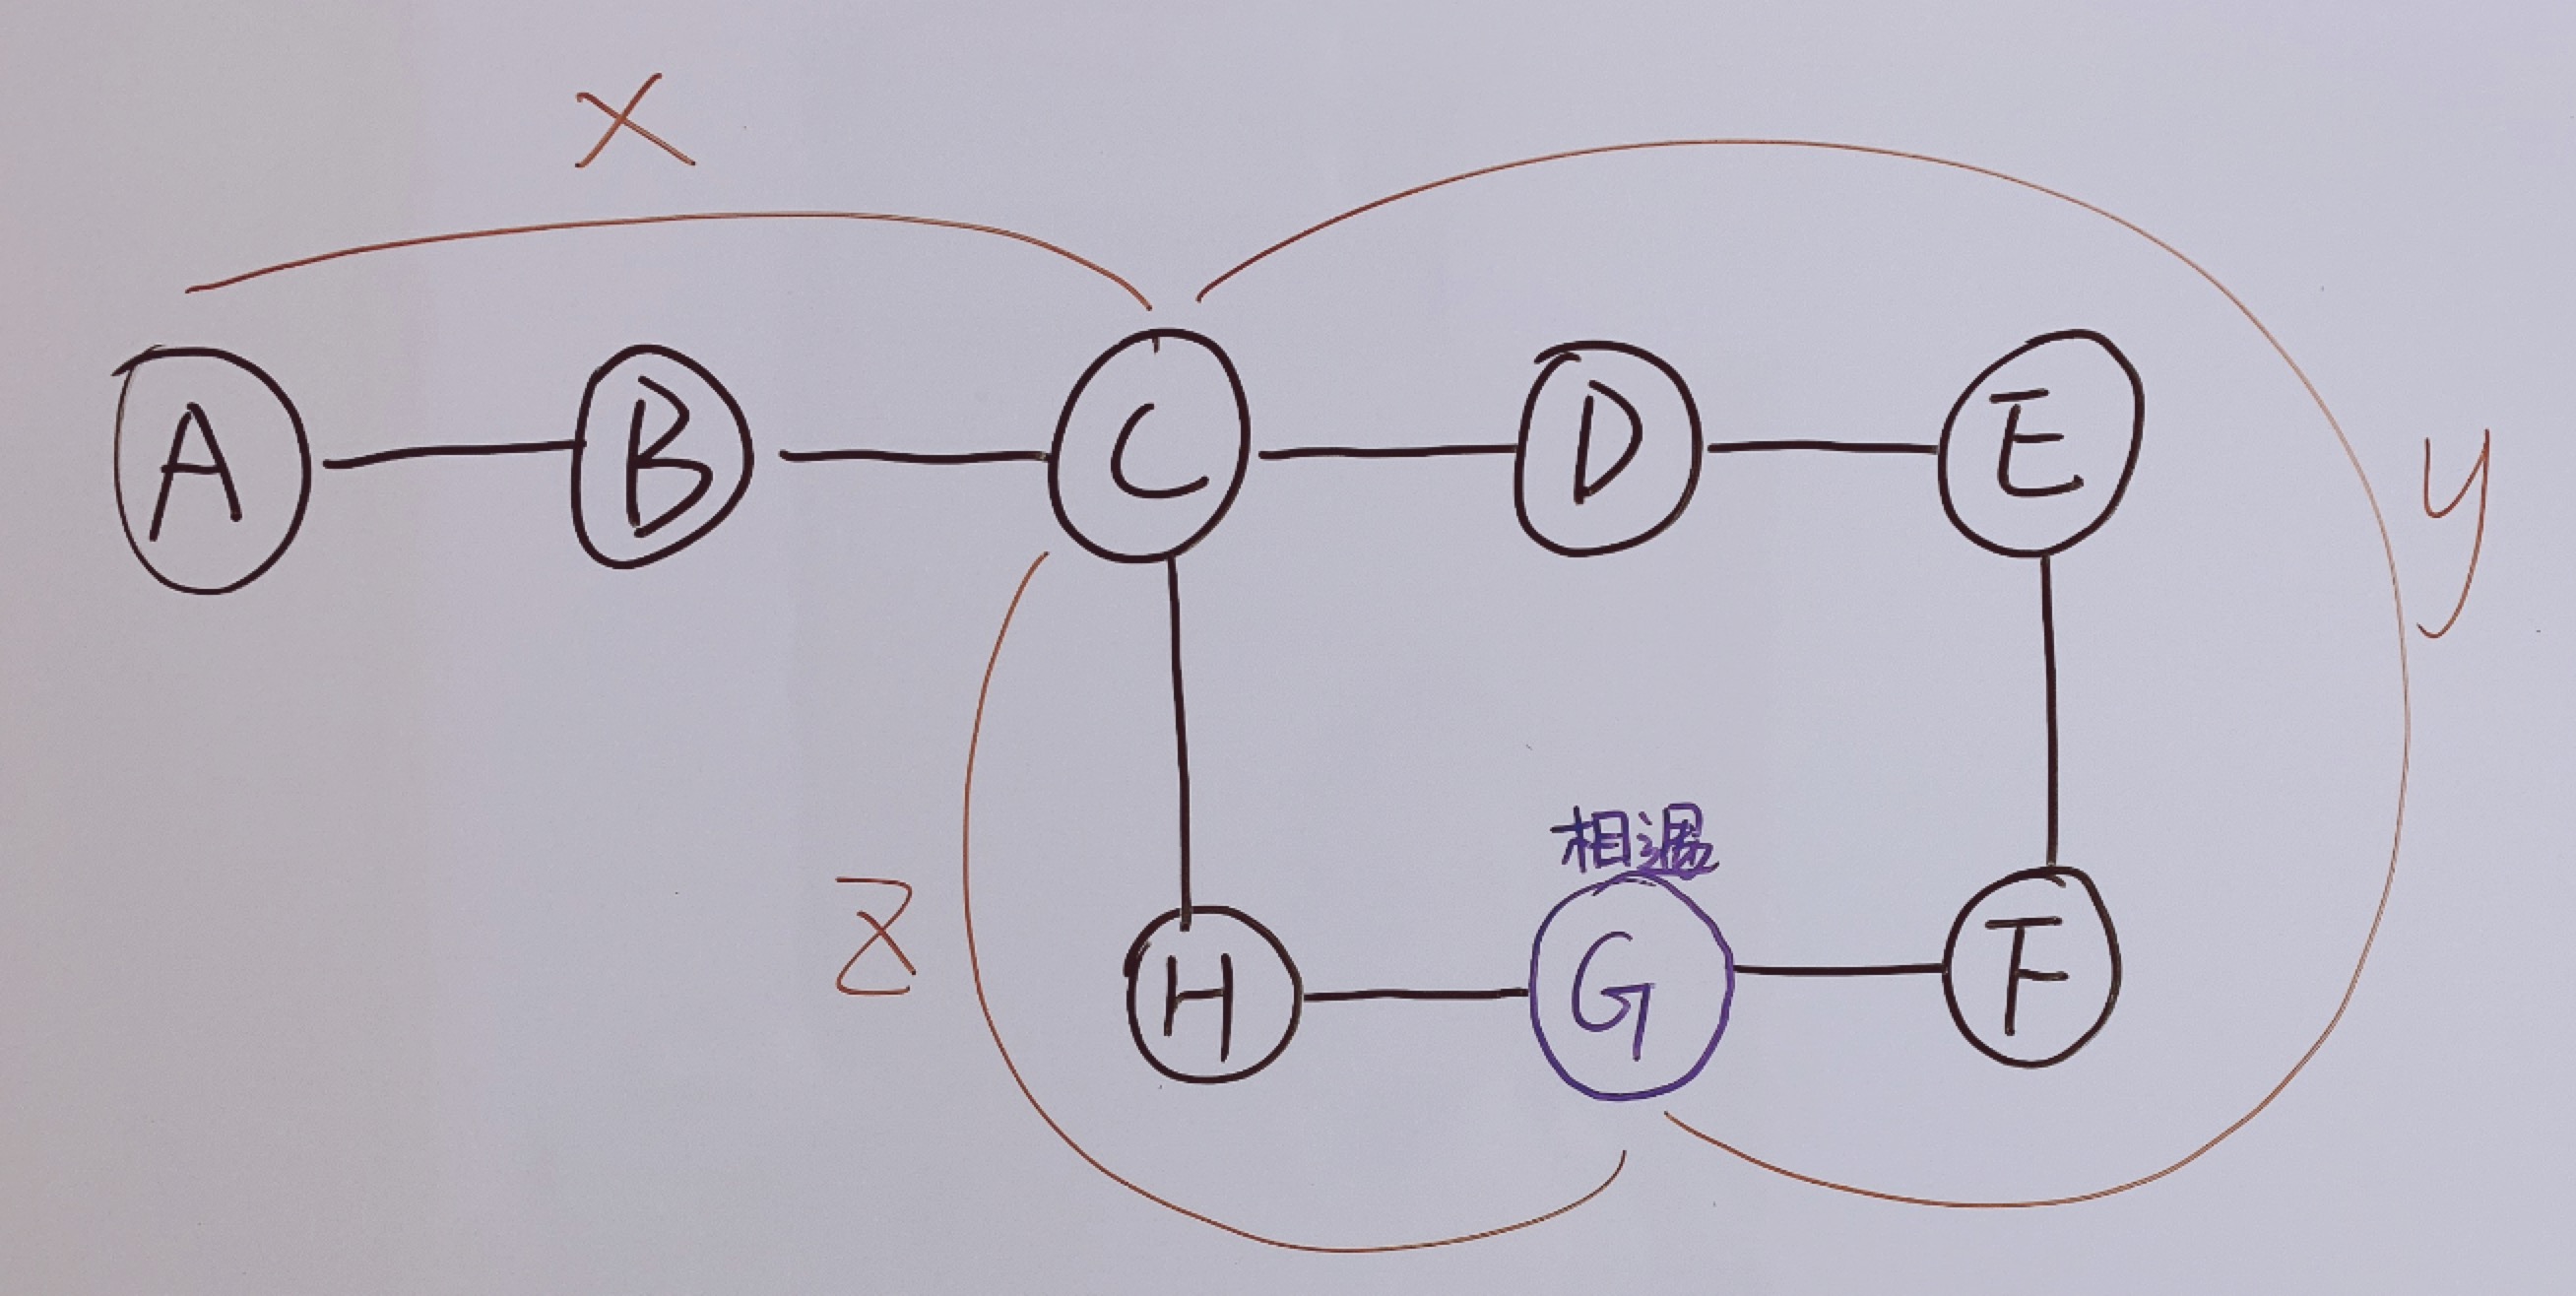 X
A B C D E
y
相遇
Z
H G F